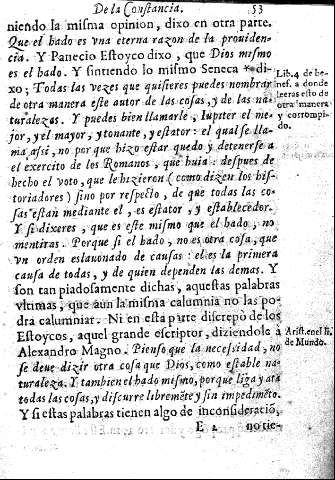 De la Constancia. 53
niendo la misma opinion, dixo en otra parte.
Que el hado es vna eterna razon de la prouiden-
cia. Y Panecio Estoyco dixo, que Dios mismo
es el hado. Y sintiendo lo mismo Seneca di-
xo; Todas las vezes que quisieres puedes nombrar
de otra manera este autor de las cosas, y de las na-
turalezas. Y puedes bien llamarle, Iupiter el me-
jor, y el mayor, y tonante, y estator: el qual se lla-
ma assi, no por que hizo estar quedo y detenerse a
el exercito de los Romanos, que huia: despues de
hecho el voto, que le hizieron (como dizen los his-
toriadores) sino por respecto, de que todas las co-
sas estan mediante el, es estator, y establecedor.
Y si dixeres, que es este mismo que el hado, no
mentiras. Porque si el hado, no es otra cosa, que
vn orden eslauonado de causas: el es la primera
causa de todas, y de quien dependen las demas. Y
son tan piadosamente dichas, aquestas palabras
vltimas, que aun la misma calumnia no las po-
dra calumniar. Ni en esta parte discrepò de los
Estoycos, aquel grande escriptor, diziendole à
Alexandro Magno. Pienso que la necessidad, no
se deue dizir otra cosa que Dios, como estable na-
turaleza. Y tambien el hado mismo, porque liga y ata
todas las cosas, y discurre libremẽte y sin impedimẽto.
Y si estas palabras tienen algo de inconsideraciõ,
E 2 no tie-
Lib. 4 de be-
nef. a donde
leeras esto de
otra manera
y corrompi-
do.
Arist. en el li.
de Mundo.